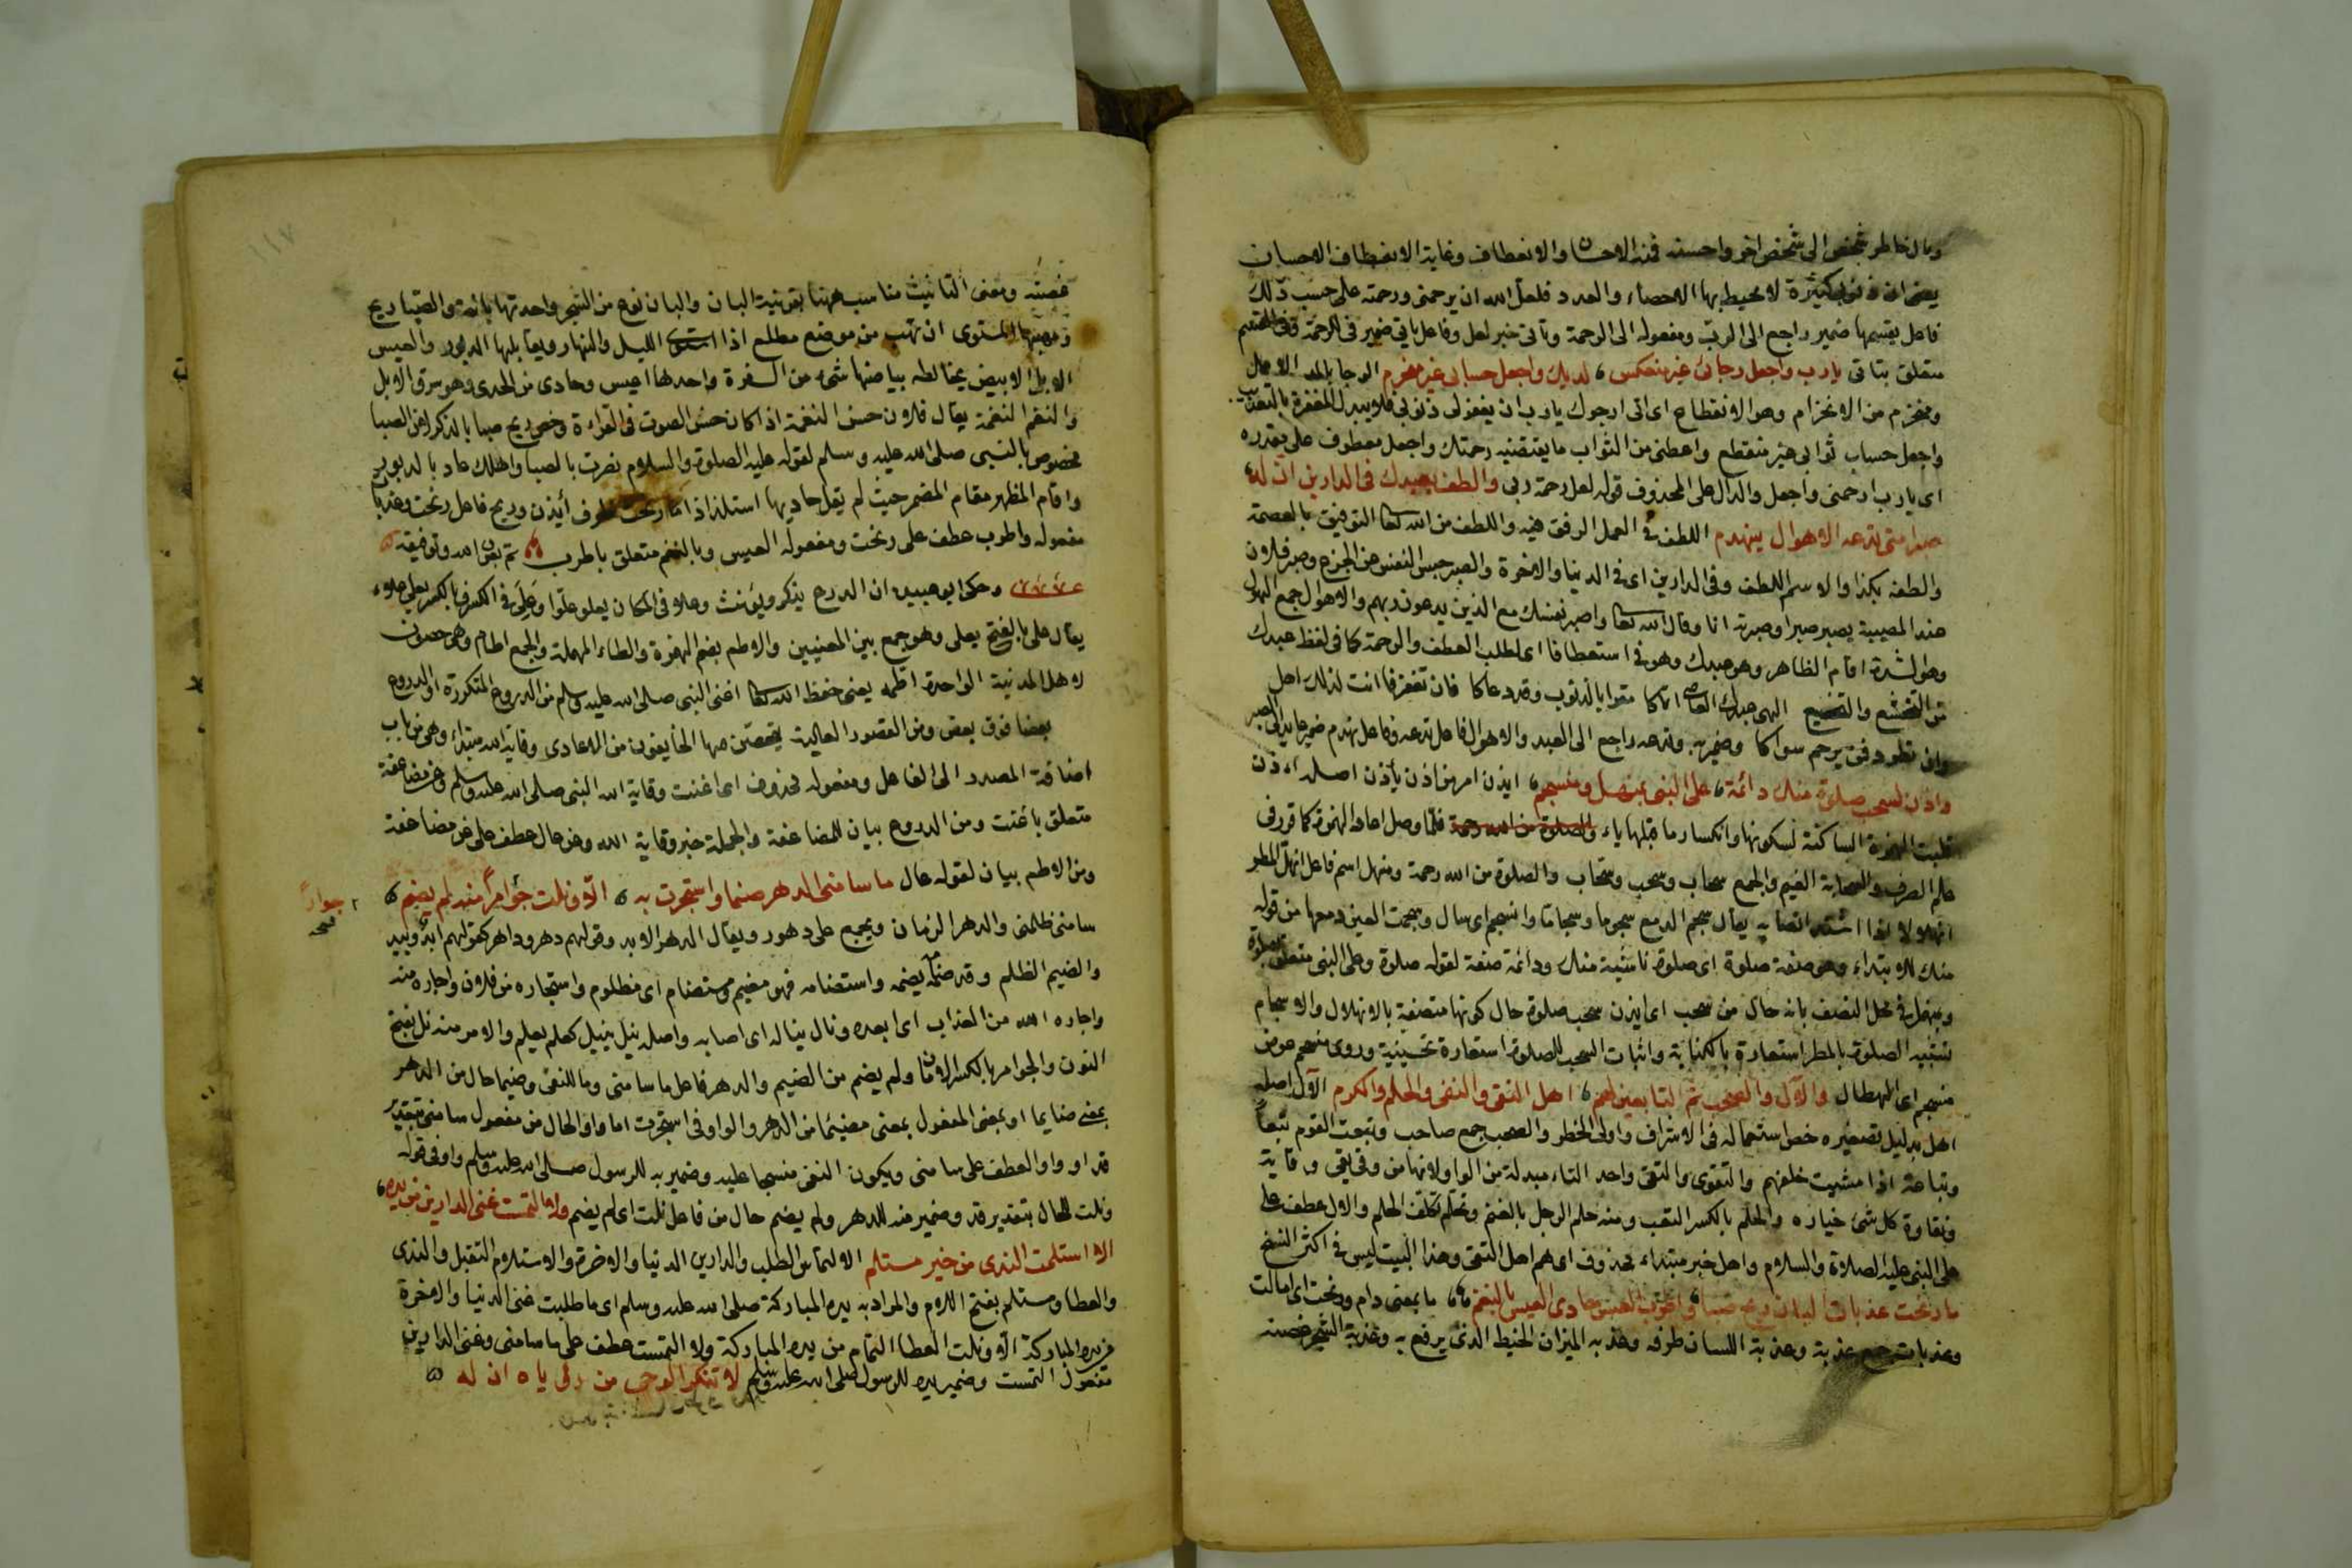 ومال خاطر شخص الى شخص اخر واحسنه فمنه الاحسان والانعطاف وغاية الانعطاف الاحسان
يعنى ان ذنوبى كثيرة لا يحيط بها الاحصاء والعدد فلعل الله ان يرحمنى ورحمته على حسب ذلك
فاعل يقسمها ضمير راجع الى الرب ومفعوله الى الرحمة وتأتى خبر لعل وفاعل يأتى ضمير فى الرحمة وفى القسم
متعلق بتأتى يارب واجعل رجائى غير منعكس لديك واجعل حسابى غير منخرم الرجا بالمد الامل
ومنخرم من الانخرام وهو الانقطاع اى انى ارجوك يارب ان يغفر لى ذنوبى فلا يبدل المغفرة بالتعذيب
واجعل حساب ثوابى غير منقطع واعطنى من الثواب ما يقتضيه رحمتك واجعل معطوف على مقدره
اى يارب ارحمنى واجعل والدال على المحذوف قوله لعل رحمة ربى والطف بعبدك فى الدارين ان له
صبرا متى تدعه الاهوال ينهزم اللطف فى العمل الرفق فيه واللطف من الله تعا التوفيق بالعصمة
والطفه بكذا والاسم اللطف وفى الدارين اى فى الدنيا والاخرة والصبر حبس النفس عن الجزع وصبر فلان
عند المصيبة يصبر صبرا وصبرته انا وقال الله تعا واصبر نفسك مع الذين يدعون ربهم والاهوال جمع الهول
وهو الشدة اقام الظاهر وهو عبدك وهو فى استعطافا اى لطلب العطف والرحمة كما فى لفظ عبدك
من التخشع والتخضع الهى عبدك العاصى اتاكا مقرا بالذنوب وقد دعاكا فان تغفر فانت لذلك اهل
وان تطرد فمن يرحم سواكا وضمير به وتدعه راجع الى العبد والاهوال فاعل تدعه وفاعل ينهزم ضمير عايد الى الصبر
واذن لسحب صلوة منك دائمة على النبى بمنهل ومنسجم ايذن امر من اذن يأذن اصله اءذن
قلبت الهمزة الساكنة لسكونها وانكسار ما قبلها ياء والصلوة من الله رحمة فلما وصل اعاد الهمزة كما قرر فى
علم الصرف والسحابة الغيم والجمع سحاب وسحب وسحاب والصلوة من الله رحمة ومنهل اسم فاعل انهل المطر
انهلالا اذا اشتد انصبابه يقال سجم الدمع سجوما وسجاما وانسجم اى سال وسجمت العين دمعها من قوله
منك للابتداء وهو صفة صلوة اى صلوة ناشئة منك ودائمة صفة لقوله صلوة وعلى النبى متعلق بصلوة
وبمنهل فى محل النصب بانه حال من سحب اى ايذن سحب صلوة حال كونها متصفة بالانهلال والانسجام
تشبيه الصلوة بالمطر استعارة بالكناية واثبات السحب للصلوة استعارة تخييلية وروى منسجم عوض
منسجم اى الهطال والآل والصحب ثم التابعين لهم اهل التقى والنقى والحلم والكرم الآل اصله
اهل بدليل تصغيره خص استعماله فى الاشراف واولى الخطر والصحب جمع صاحب وتبعت القوم تبعا
وتباعة اذا مشيت خلفهم والتقوى والتقى واحد التاء مبدلة من الواو لانها من وقى يقى وقاية
ونقاوة كل شىء خياره والحلم بالكسر التقب ومنه حلم الرجل بالضم وتحلم تكلف الحلم والآل عطف على
على النبى عليه الصلاة والسلام واهل خبر مبتداء محذوف اى هم اهل التقى وهذا البيت ليس فى اكثر النسخ
ما رنحت عذبات البان ريح صبا واطرب العيس حادى العيس بالنغم ما بمعنى دام ورنحت اى امالت
وعذبات جمع عذبة وعذبة اللسان طرفه وعذبه الميزان الخيط الذى يرفع به وعذبة الشجر غصنه
١١٧
غصنه ومعنى التانيث مناسب ههنا بقرينة البان والبان نوع من الشجر واحدتها بانة والصبا ريح
ومهبها المستوى ان تهب من موضع مطلع اذا استوى الليل والنهار ويقابلها الدبور والعيس
الابل الابيض يخالطه بياضها شىء من السفرة واحدها اعيس وحادى من الحدى وهو سوق الابل
والنغم النغمة يقال فلان حسن النغمة اذا كان حسن الصوت فى القراءة وخص ريح صبا بالذكر لان الصبا
مخصوص بالنبى صلى الله عليه وسلم لقوله عليه الصلوة والسلام نصرت بالصبا واهلك عاد بالدبور
واقام المظهر مقام المضمر حيث لم يقل حاديها استلذاذا ما رنحت ظرف أيذن وريح فاعل رنحت وعذبات
مفعوله واطرب عطف على رنحت ومفعوله العيس وبالنغم متعلق باطرب تم بعون الله وتوفيقه
وحكى ابو عبيدة ان الدرع يذكر ويؤنث وعلا فى المكان يعلو علوا وعلى فى الكسر بالكسر يعلى علاء
يقال على بالفتح يعلى وهو جمع بين المعنيين والاطم بضم الهمزة والطاء المهملة والجمع اطام وهى حصون
لاهل المدينة الواحدة اطمه يعنى حفظ الله تعا اغنى النبى صلى الله عليه وسلم من الدروع المتكررة او الدروع
بعضا فوق بعض ومن القصور العالية يتحصن بها الخايفون من الاعادى وقاية الله مبتداء وهى من باب
اضافة المصدر الى الفاعل ومفعوله محذوف اى اغنت وقاية الله النبى صلى الله عليه وسلم وعن مضاعفة
متعلق باغنت ومن الدروع بيان للمضاعفة والجملة خبر وقاية الله وعن عال عطف على عن مضاعفة
ومن الاطم بيان لقوله عال ما سامنى الدهر ضيما واستجرت به الا ونلت جوارا منه لم يضم
جوارا
نسخه
سامنى ظلمنى والدهر الزمان ويجمع على دهور ويقال الدهر الابد وقولهم دهر وداهر كقولهم ابد وابيد
والضيم الظلم وقد ضامه يضيمه واستضامه فهو مضيم ومستضام اى مظلوم واستجاره من فلان واجاره منه
واجاره الله من العذاب اى ابعده ونال يناله اى اصابه واصله ينيل ينيل كعلم يعلم والامر منه نل بفتح
النون والجوار بالكسر الامان ولم يضم من الضيم والدهر فاعل ما سامنى وما للنفى وضيما حال من الدهر
بمعنى ضايما او بمعنى المفعول بمعنى مضيما من الدهر والواو فى استجرت اما واو الحال من مفعول سامنى بتقدير
قد او واو العطف على سامنى ويكون النفى منسحبا عليه وضمير به للرسول صلى الله عليه وسلم واو فى قوله
ونلت للحال بتقدير قد وضمير منه للدهر ولم يضم حال من فاعل نلت اى لم يضم ولا التمست غنى الدارين من يده
الا استلمت الندى من خير مستلم الالتماس الطلب والدارين الدنيا والاخرة والاستلام التقبل والندى
والعطا ومستلم بفتح اللام والمراد به يده المباركة صلى الله عليه وسلم اى ما طلبت غنى الدنيا والاخرة
من يده المباركة الا ونلت العطا التمام من يده المباركة ولا التمست عطف على ما سامنى وغنى الدارين
مفعول التمست وضمير يده للرسول صلى الله عليه وسلم لا تنكر الوحى من رؤياه ان له